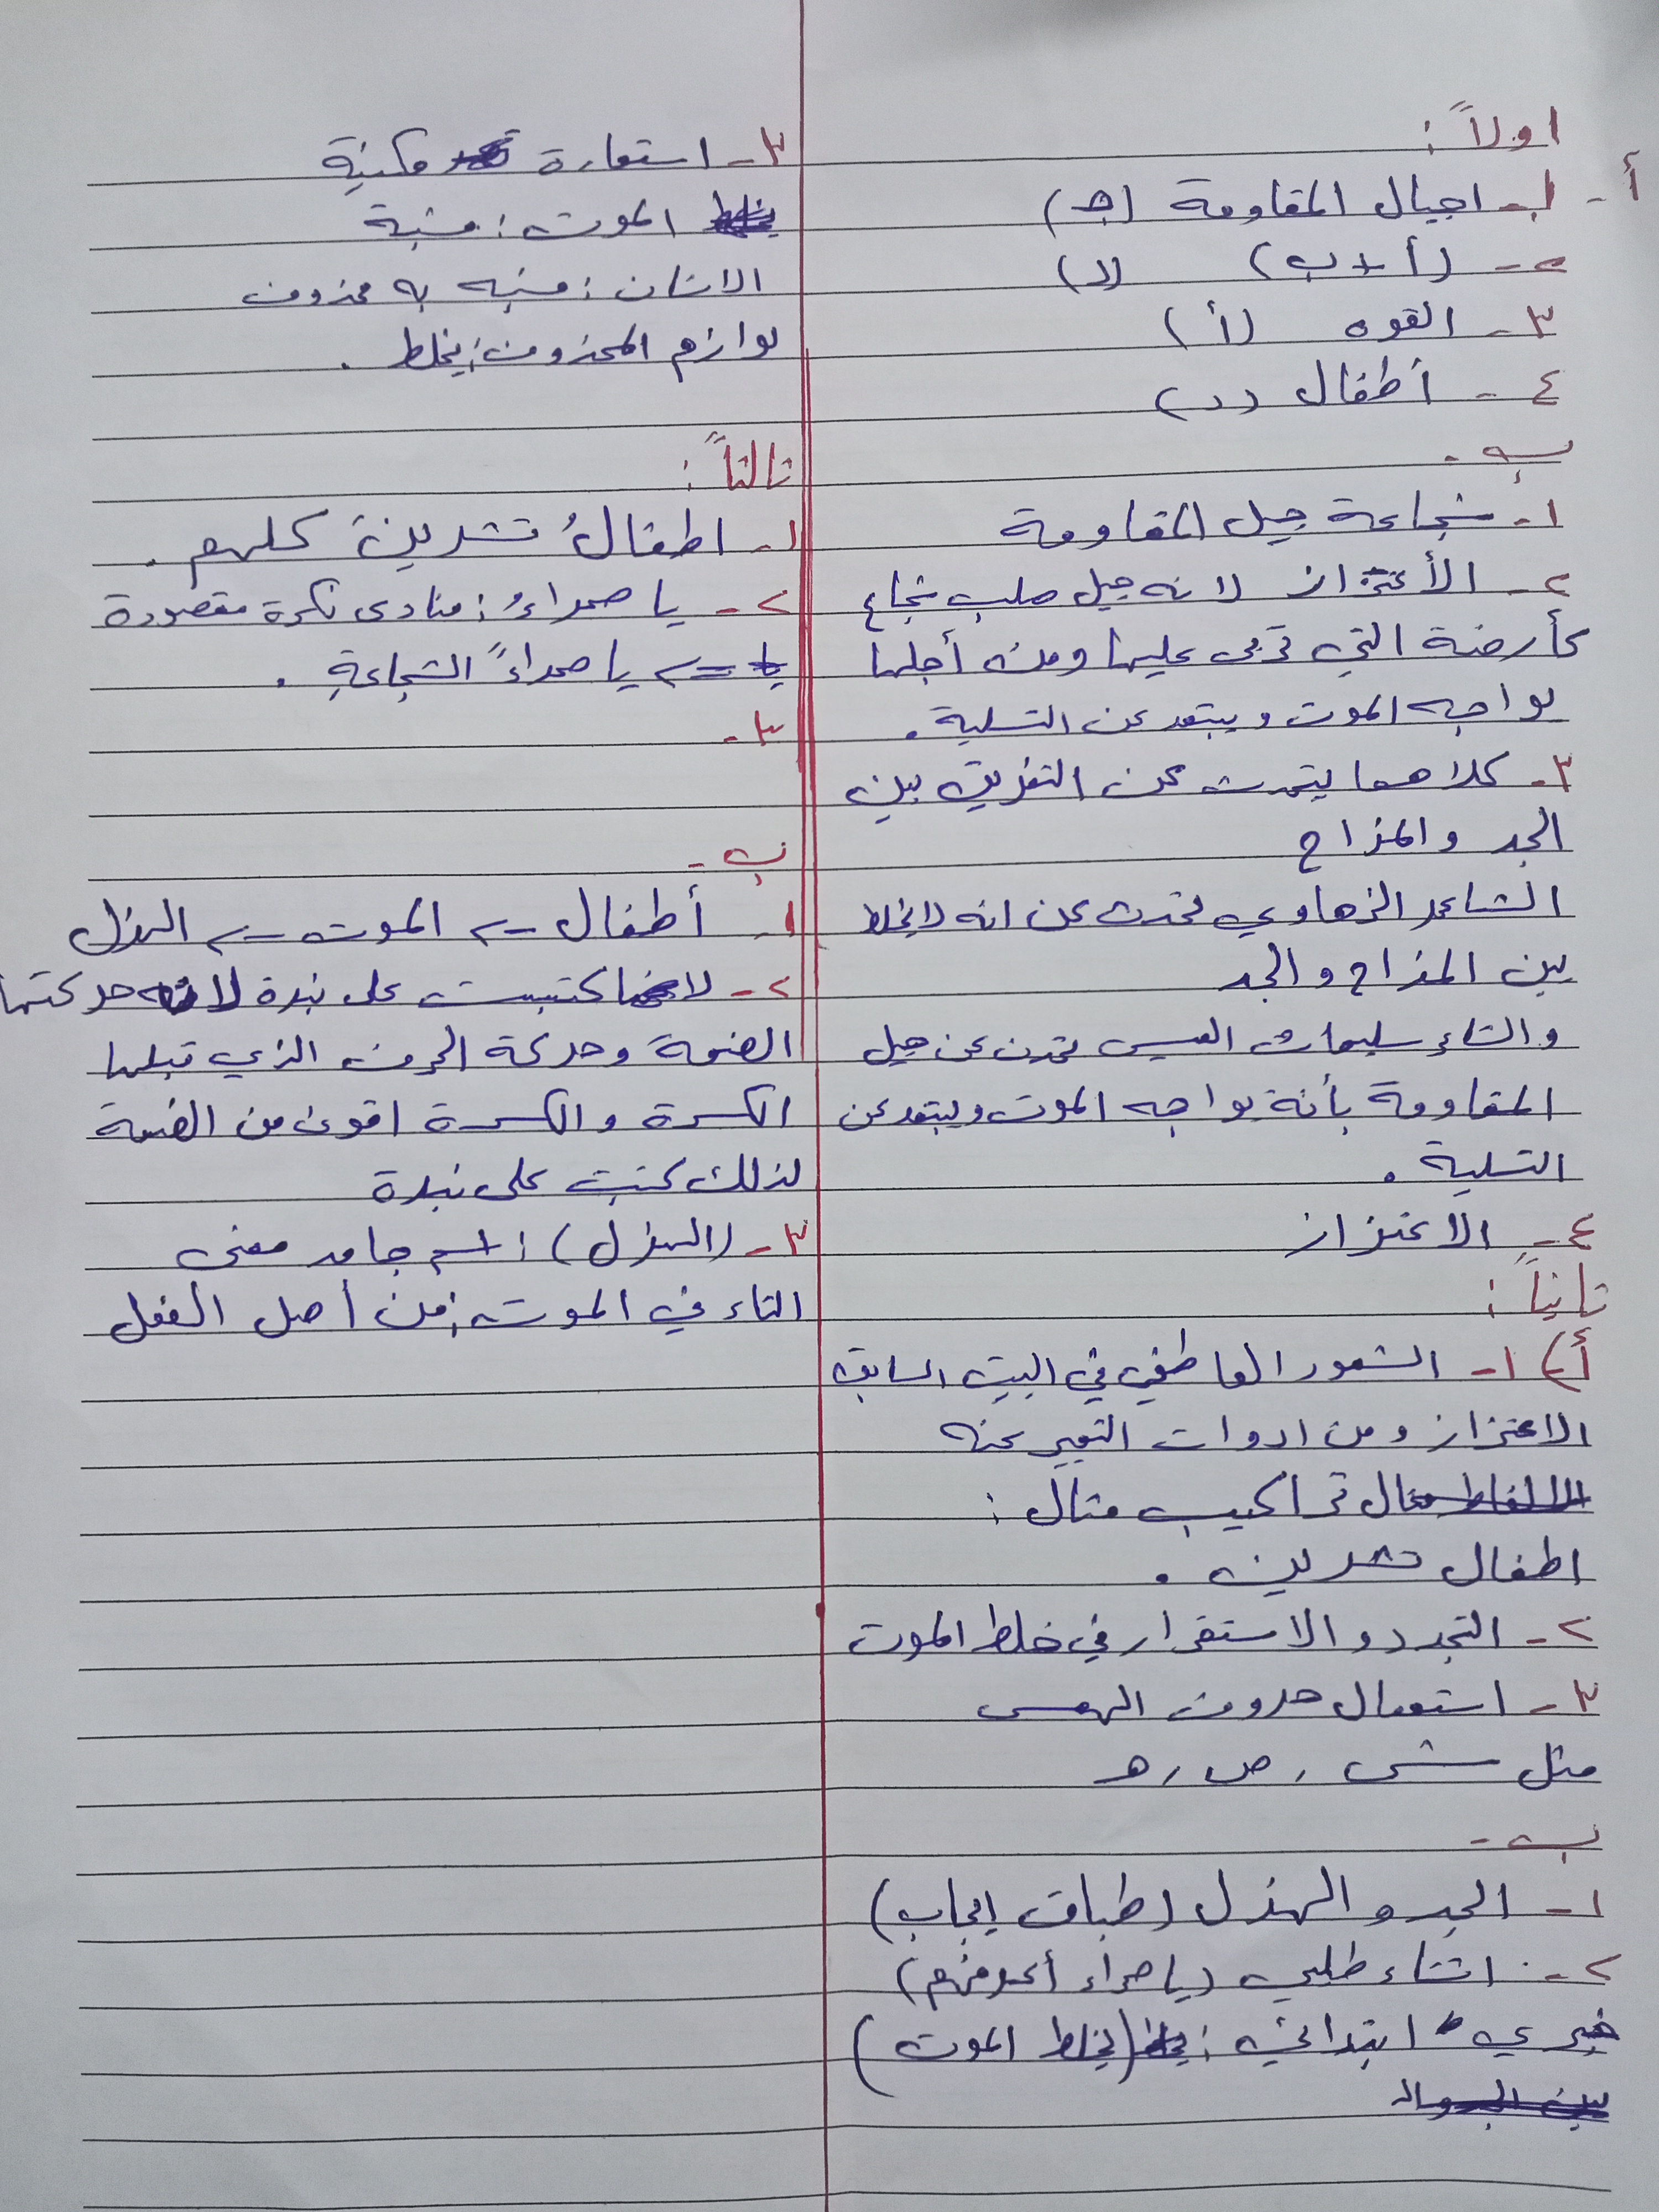 اولاً :
أ - ١- اجيال المقاومة (جـ)
٢- (أ + ب) (د)
٣- القوه (أ)
٤- أطفال (د)
ب -
١- شجاعة جيل المقاومة
٢- الأعتزاز لانه جيل صلب شجاع
كأرضة التي تربى عليها ومن أجلها
يواجه الموت ويبتعد عن التسلية .
٣- كلاهما يتحدث عن التفريق بين
الجد والمزاح
الشاعر الزهاوي تحدث عن انه لا يخلط
بين المزاح والجد
والشاعر سليمان العيسى تحدث عن جيل
المقاومة بأنة يواجه الموت ويبتعد عن
التسلية .
٤- الاعتزاز
ثانياً :
أ) ١- الشعور العاطفي في البيت السابق
الاعتزاز ومن ادوات التعبير عنه
تراكيب مثال :
اطفال تشرين .
٢- التجدد والاستقرار في خلط الموت
٣- استعمال حروف الهمس
مثل ش , ص , هـ
ب -
١- الجد و الهزل (طباق إيجاب)
٢- انشاء طلبي (يا صحراء أعرفهم)
خبري ابتدائي : (يخلط الموت)
٣- استعارة مكنية
الموت : مشبة
الانسان : مشبه به محذوف
لوازم المحذوف : يخلط .
ثالثاً :
١- اطفالُ تشرين كلهم .
٢- يا صحراءُ : منادى نكرة مقصودة
يا صحراءَ الشجاعةِ .
٣-
ب -
١- أطفال -> الموت -> الهزل
٢- كتبت على نبرة حركتها
الضمة وحركة الحرف الذي قبلها
الكسرة والكسرة اقوى من الضمة
لذلك كتبت على نبرة
٣- (الهزل) : اسم جامد معنى
التاء في الموت : من أصل الفعل